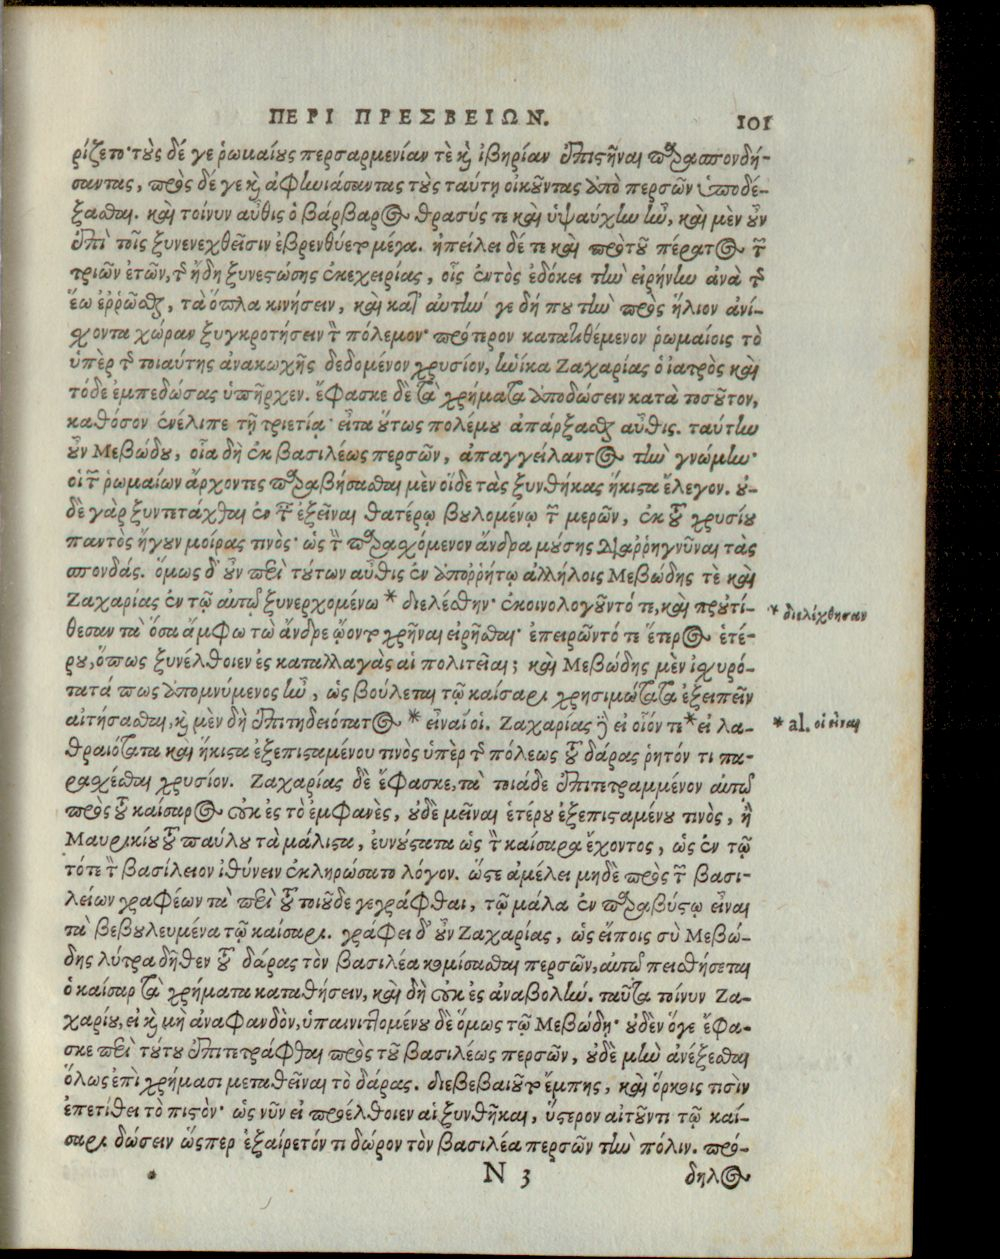 ΠΕΡΙ ΠΡΕΣΒΕΙΩΝ. 101
ρίζετο· τοὺς δέ γε ῥωμαίους περσαρμενίαν τὲ κὶ ἰβηρίαν ἐπιστῆναι παρασπονδή-
σαντας, πρὸς δέ γε κὶ ἀφηνιάσαντας τοὺς ταύτῃ οἰκοῦντας ἀπὸ περσῶν ὑποδέ-
ξασθαι. καὶ τοίνυν αὖθις ὁ βάρβαρος θρασύς τε καὶ ὑψαύχην ἦν, καὶ μὲν οὖν
ἐπὶ τοῖς ξυνενεχθεῖσιν ἐβρενθύετο μέγα. ἠπείλει δέ τε καὶ πρὸ τοῦ πέρατος τῶν
τριῶν ἐτῶν, τῆς ἤδη ξυνεστώσης ἐκεχειρίας, οἷς ἐντὸς ἐδόκει τὴν εἰρήνην ἀνὰ τὴν
ἕω ἐῤῥῶσθαι, τὰ ὅπλα κινήσειν, καὶ κατ' αὐτὴν γε δή που τὴν πρὸς ἥλιον ἀνί-
χοντα χώραν ξυγκροτήσειν τὸν πόλεμον· πρότερον καταθέμενον ῥωμαίοις τὸ
ὑπὲρ τῆς τοιαύτης ἀνακωχῆς δεδομένον χρυσίον, ἡνίκα Ζαχαρίας ὁ ἰατρὸς καὶ
τόδε ἐμπεδώσας ὑπῆρχεν. ἔφασκε δὲ τὰ χρήματα ἀποδώσειν κατὰ τοσοῦτον,
καθόσον ἐνέλιπε τῇ τριετίᾳ· εἶτα οὕτως πολέμου ἀπάρξασθαι αὖθις. ταύτην
οὖν Μεβώδου, οἷα δὴ ἐκ βασιλέως περσῶν, ἀπαγγείλαντος τὴν γνώμην·
οἱ τῶν ῥωμαίων ἄρχοντες παραβήσασθαι μὲν οἵδε τὰς ξυνθήκας ἥκιστα ἔλεγον. οὐ-
δὲ γὰρ ξυντετάχθαι ἐν τῷ ἐξεῖναι θατέρῳ βουλομένῳ τῶν μερῶν, ἐκ τοῦ χρυσίου
παντὸς ἤγουν μοίρας τινὸς· ὡς τὸν παρασχόμενον ἄνδρα μούσης διαῤῥηγνῦναι τὰς
σπονδάς. ὅμως δ' οὖν περὶ τούτων αὖθις ἐν ἀποῤῥήτῳ ἀλλήλοις Μεβώδης τὲ καὶ
Ζαχαρίας ἐν τῷ αὐτῷ ξυνερχομένω * διελέσθην· ἐκοινολογοῦντό τε, καὶ προὐτί-
θεσαν τὰ ὅσα ἄμφω τὼ ἄνδρε ᾤοντο χρῆναι εἰρῆσθαι· ἐπειρῶντό τε ἕτερος ἑτέ-
ρου, ὅπως ξυνέλθοιεν ἐς καταλλαγὰς αἱ πολιτεῖαι; καὶ Μεβώδης μὲν ἰσχυρό-
τατά πως ἀπομνύμενος ἦν, ὡς βούλεται τῷ καίσαρι χρησιμώτατα ἐξειπεῖν
αἰτήσασθαι, κὶ μὲν δὴ ἐπιτηδειότατος * εἶναί οἱ. Ζαχαρίας δὴ εἰ οἷόν τι * εἰ λα-
θραιότατα καὶ ἥκιστα ἐξεπισταμένου τινὸς ὑπὲρ τῆς πόλεως τοῦ δάρας ῥητόν τι πα-
ρασχέσθαι χρυσίον. Ζαχαρίας δὲ ἔφασκε, τὰ τοιάδε ἐπιτετραμμένον αὐτῷ
πρὸς τοῦ καίσαρος οὐκ ἐς τὸ ἐμφανὲς, οὐδὲ μεῖναι ἑτέρου ἐξεπισταμένου τινὸς, ἢ
Μαυρικίου τοῦ παύλου τὰ μάλιστα, εὐνούστατα ὡς τὸν καίσαρα ἔχοντος, ὡς ἐν τῷ
τότε τὸν βασίλειον ἰθύνειν ἐκληρώσατο λόγον. ὥστε ἀμέλει μηδὲ πρὸς τῶν βασι-
λείων γραφέων τὰ περὶ τοῦ τοιοῦδε γεγράφθαι, τῷ μάλα ἐν παραβύστῳ εἶναι
τὰ βεβουλευμένα τῷ καίσαρι. γράφει δ' οὖν Ζαχαρίας, ὡς εἴποις σὺ Μεβώ-
δης λύτρα δῆθεν τοῦ δάρας τὸν βασιλέα κομίσασθαι περσῶν, αὐτῷ πεισθήσεται
ὁ καίσαρ τὰ χρήματα καταθήσειν, καὶ δὴ οὐκ ἐς ἀναβολήν. ταῦτα τοίνυν Ζα-
χαρίου, εἰ κὶ μὴ ἀναφανδὸν, ὑπαινιττομένου δὲ ὅμως τῷ Μεβώδῃ· οὐδὲν ὅγε ἔφα-
σκε περὶ τούτου ἐπιτετράφθαι πρὸς τοῦ βασιλέως περσῶν, οὐδὲ μὴν ἀνέξεσθαι
ὅλως ἐπὶ χρήμασι μεταθεῖναι τὸ δάρας. διεβεβαιοῦτο ἔμπης, καὶ ὅρκοις τισὶν
ἐπετίθει τὸ πιστὸν· ὡς νῦν εἰ προέλθοιεν αἱ ξυνθῆκαι, ὕστερον αἰτοῦντι τῷ καί-
σαρι δώσειν ὥσπερ ἐξαίρετόν τι δῶρον τὸν βασιλέα περσῶν τὴν πόλιν. πρό-
N 3 δηλος
* διελέχθησαν
* al. οἱ εἶναι